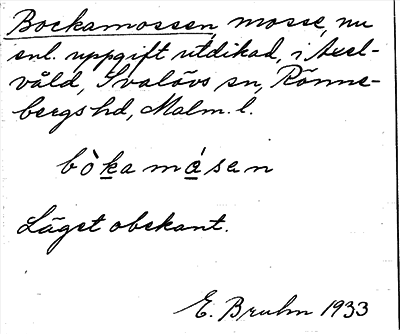 Bockamossen, mosse, nu
enl. uppgift utdikad, i Axel-
våld, Svalövs sn, Rönne-
bergs hd, Malm. l.
bòkamósen
Läget obekant.
E. Bruhn 1933